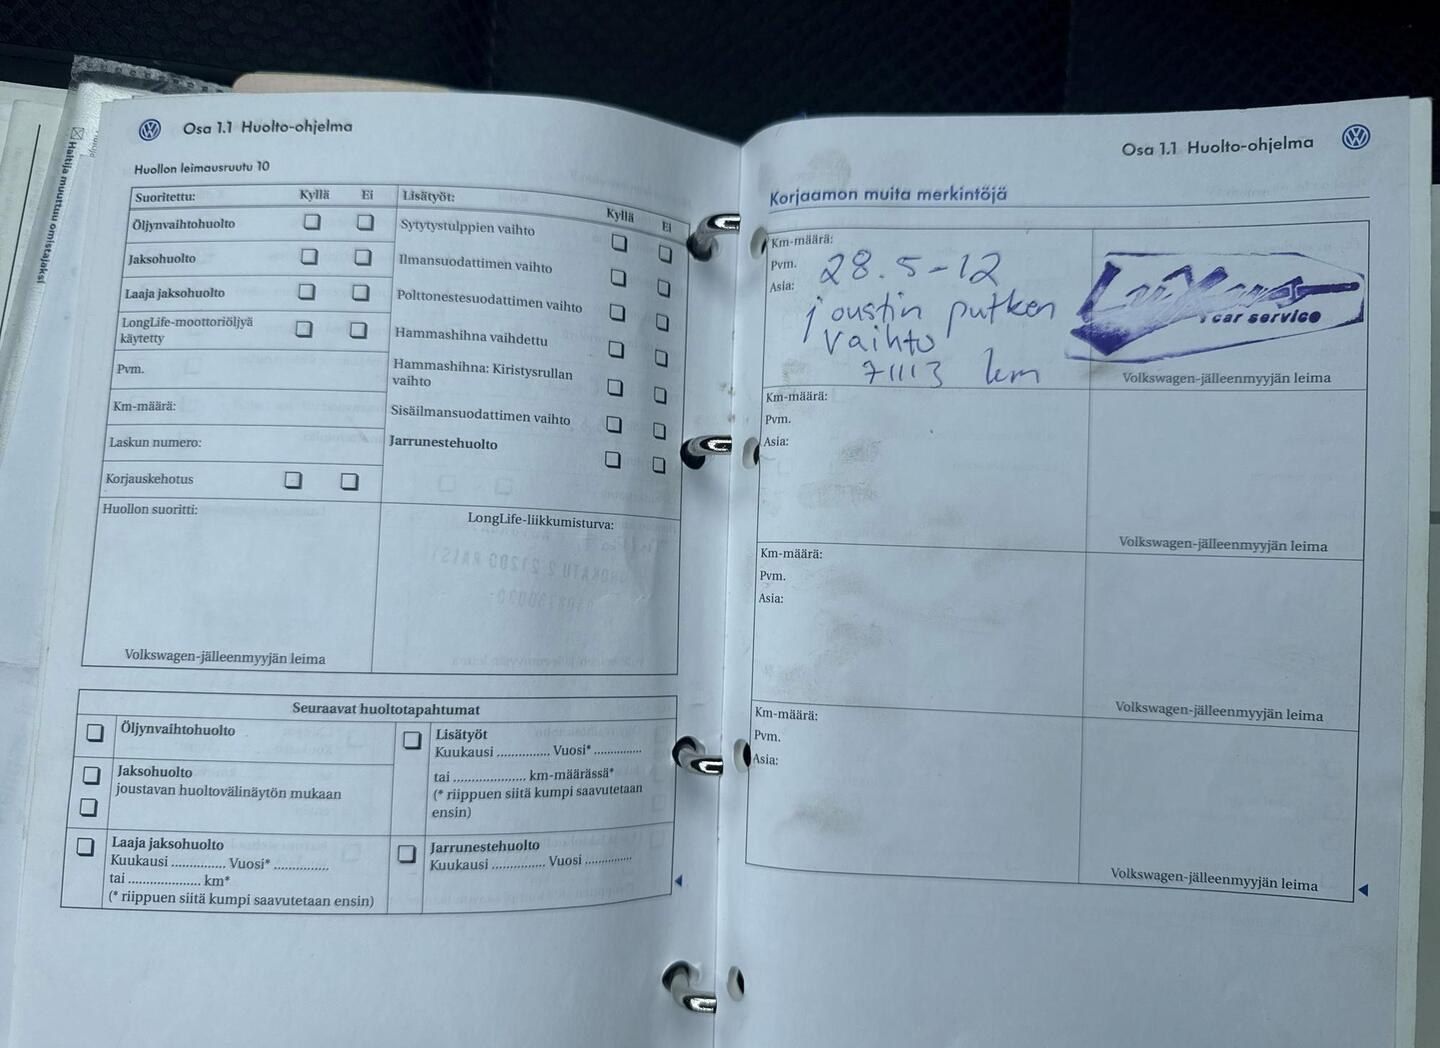 Haltija muuttuu omistajaksi
Osa 1.1 Huolto-ohjelma
Huollon leimausruutu 10
Suoritettu: Kyllä Ei
Öljynvaihtohuolto
Jaksohuolto
Laaja jaksohuolto
LongLife-moottoriöljyä
käytetty
Pvm.
Km-määrä:
Laskun numero:
Korjauskehotus
Huollon suoritti:
Volkswagen-jälleenmyyjän leima
Lisätyöt: Kyllä Ei
Sytytystulppien vaihto
Ilmansuodattimen vaihto
Polttonestesuodattimen vaihto
Hammashihna vaihdettu
Hammashihna: Kiristysrullan
vaihto
Sisäilmansuodattimen vaihto
Jarrunestehuolto
LongLife-liikkumisturva:
Seuraavat huoltotapahtumat
Öljynvaihtohuolto
Jaksohuolto
joustavan huoltovälinäytön mukaan
Laaja jaksohuolto
Kuukausi ............... Vuosi* ...............
tai .................... km*
(* riippuen siitä kumpi saavutetaan ensin)
Lisätyöt
Kuukausi ............... Vuosi* .............
tai .................... km-määrässä*
(* riippuen siitä kumpi saavutetaan
ensin)
Jarrunestehuolto
Kuukausi ............... Vuosi .............
Osa 1.1 Huolto-ohjelma
Korjaamon muita merkintöjä
Km-määrä:
Pvm. 28.5-12
Asia: joustin putken
vaihto
71113 km
car service
Volkswagen-jälleenmyyjän leima
Km-määrä:
Pvm.
Asia:
Volkswagen-jälleenmyyjän leima
Km-määrä:
Pvm.
Asia:
Volkswagen-jälleenmyyjän leima
Km-määrä:
Pvm.
Asia:
Volkswagen-jälleenmyyjän leima